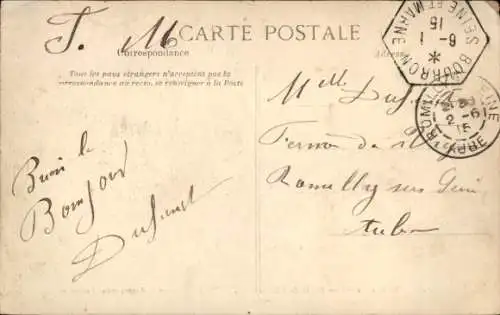 T. M
CARTE POSTALE
Correspondance
Adresse
Tous les pays étrangers n'acceptent pas la
correspondance au recto, se renseigner à la Poste
Bien le
Bonjour
Melle
Ferme de
Romilly sur Seine
Aube
S BOURRON
SEINE ET MARNE
*
6 - 1
15
ROMILLY
SEINE
2 - 6
15
AUBE